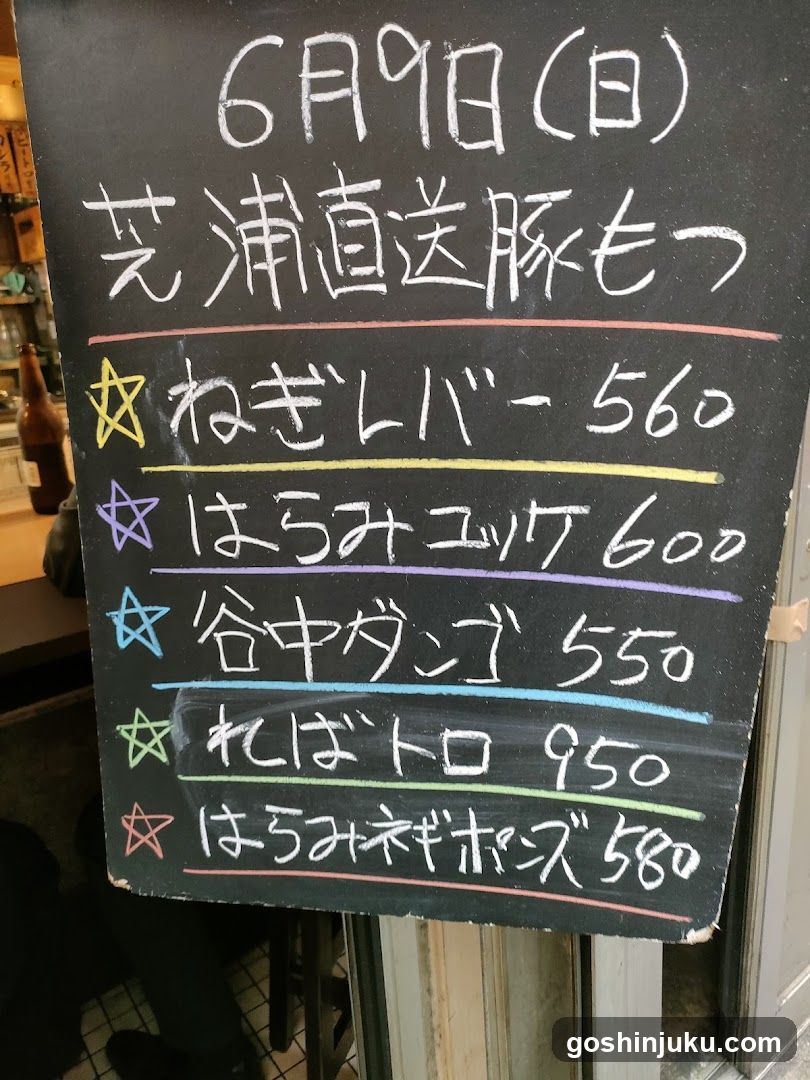 6月9日(日)
芝浦直送豚もつ
ねぎレバー 560
はらみユッケ 600
谷中ダンゴ 550
ればトロ 950
はらみネギポンズ 580
goshinjuku.com